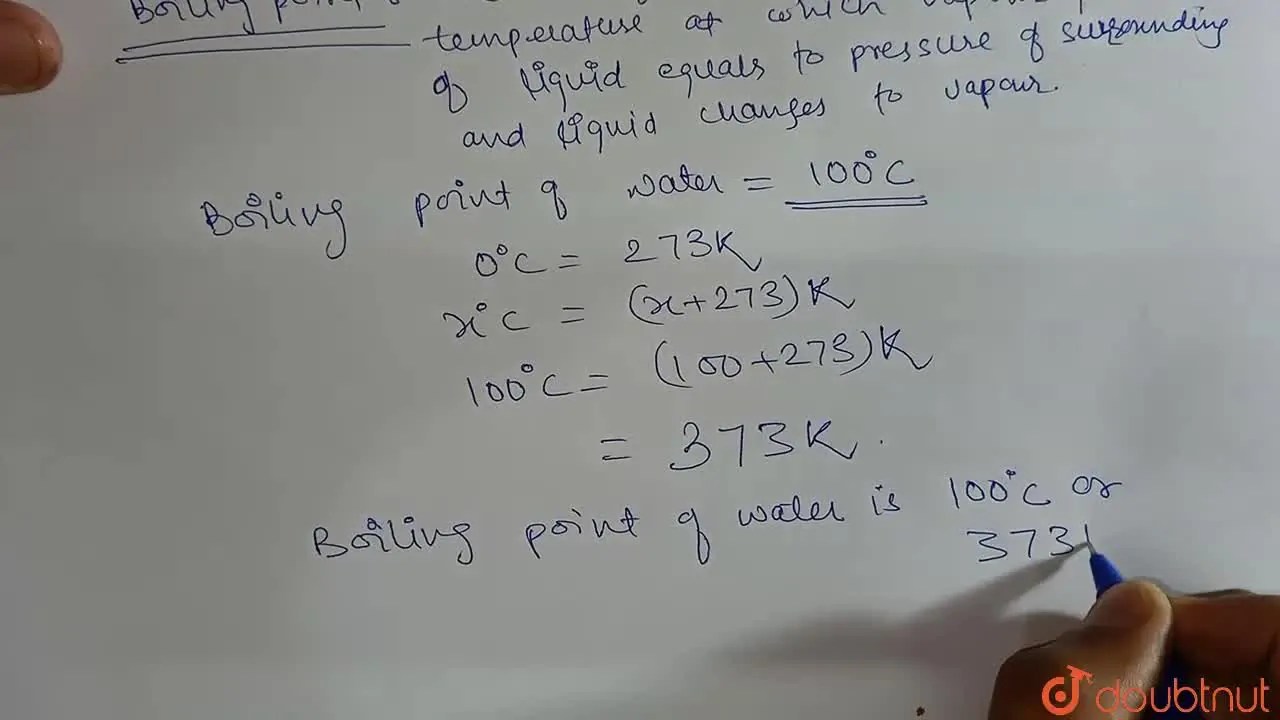 Boiling point
temperature at which vapour
of liquid equals to pressure of surrounding
and liquid changes to vapour.
Boiling point of water = 100°C
0°C = 273K
x°C = (x+273)K
100°C = (100+273)K
= 373K.
Boiling point of water is 100°C or
373
doubtnut